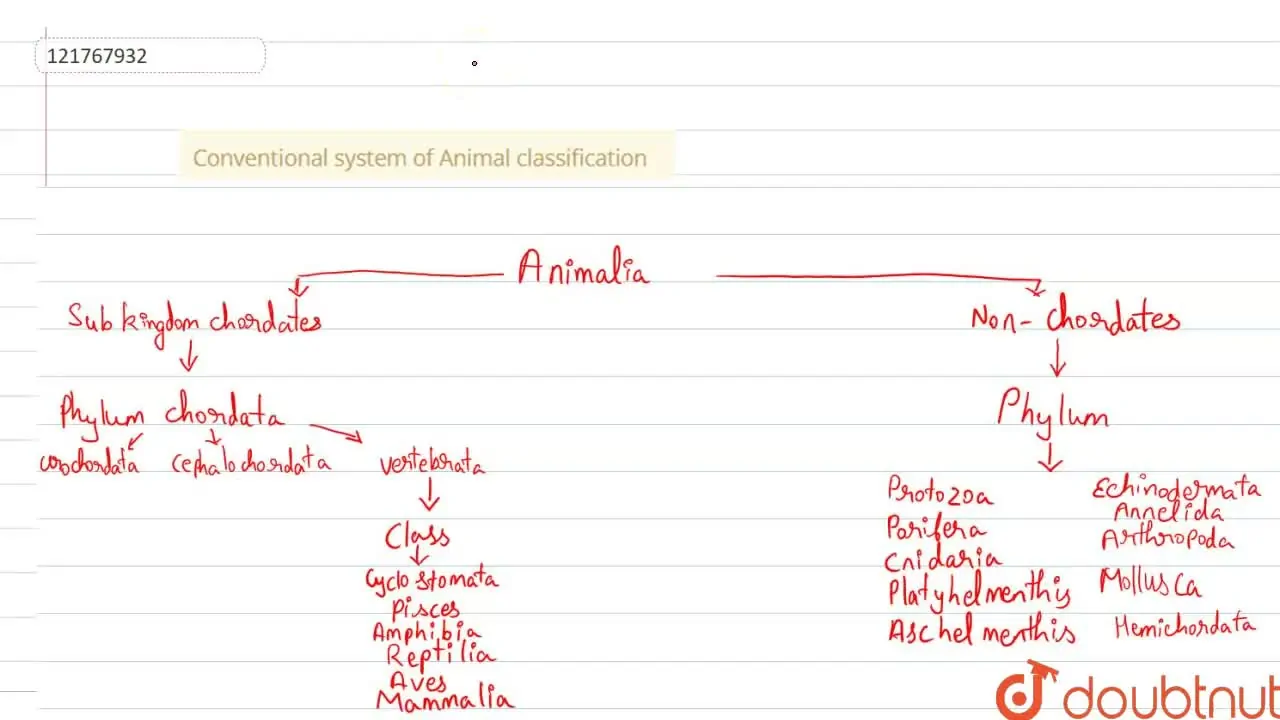 121767932
Conventional system of Animal classification
Animalia
Sub kingdom chordates
Non- Chordates
Phylum chordata
Phylum
urochordata cephalochordata vertebrata
Class
Cyclostomata
Pisces
Amphibia
Reptilia
Aves
Mammalia
Protozoa
Porifera
Cnidaria
Platyhelmenthis
Aschelmenthis
Echinodermata
Annelida
Arthropoda
Mollusca
Hemichordata
doubtnut